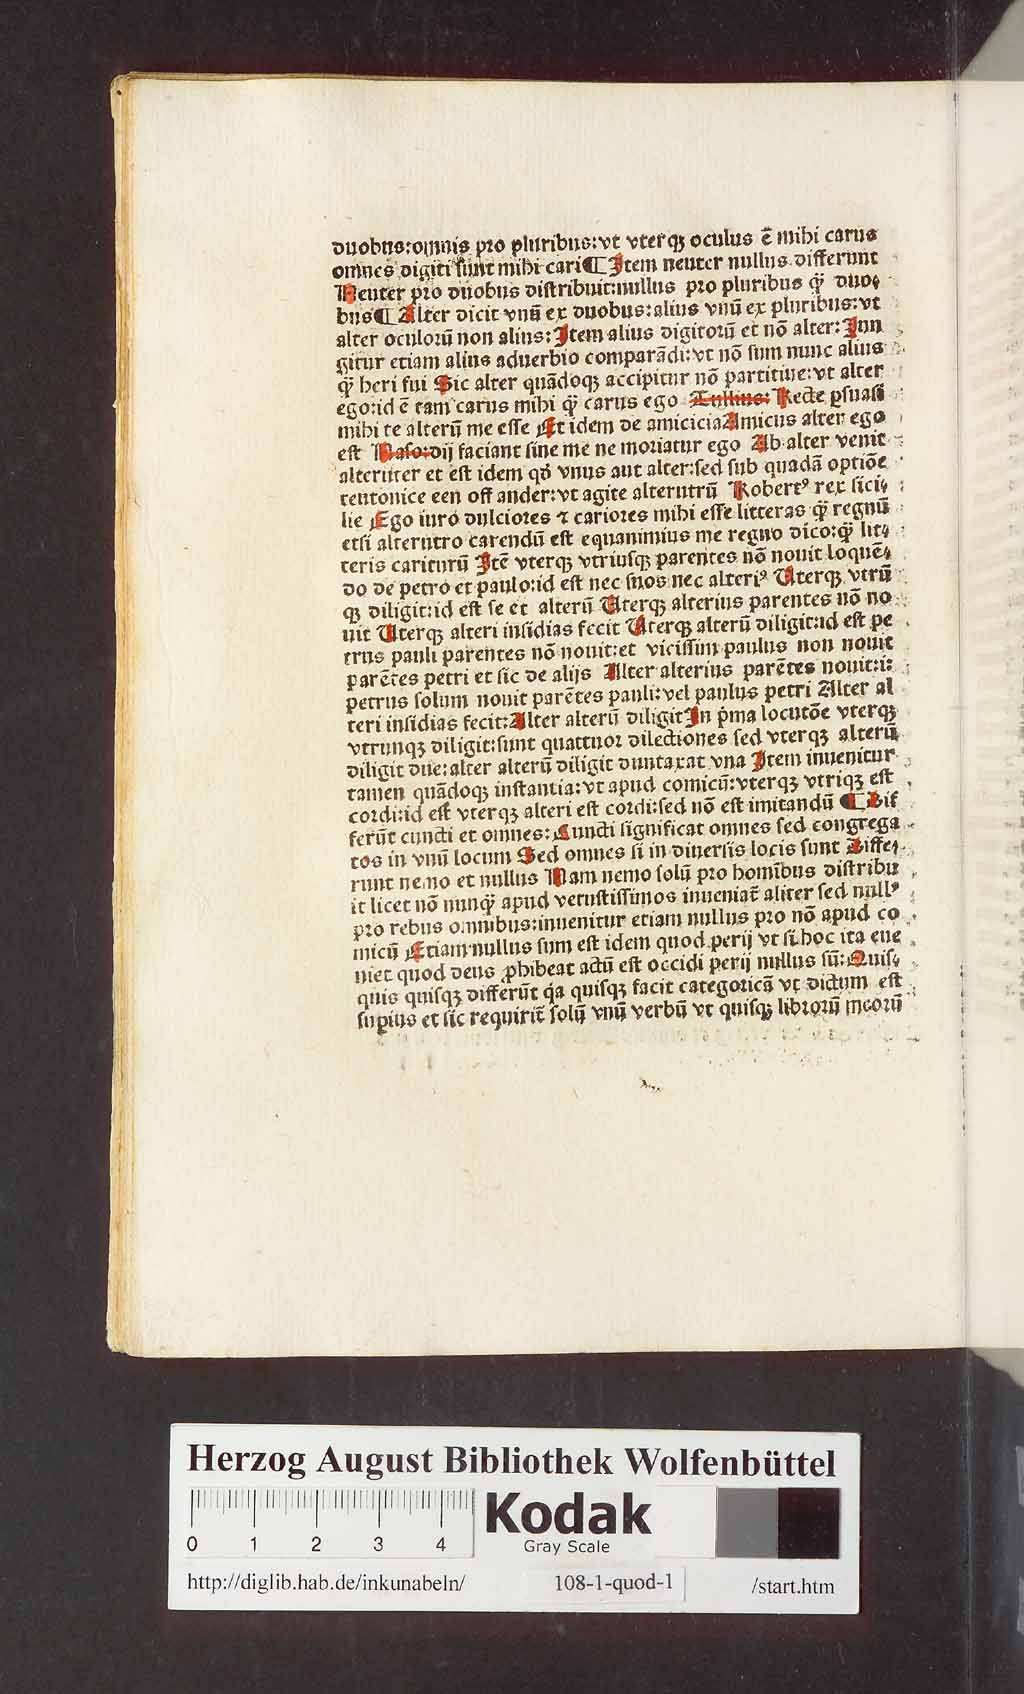 duobus:omnis pro pluribus:vt vterqꝫ oculus ē mihi carus
omnes digiti sunt mihi cari¶ Item neuter nullus differunt
Neuter pro duobus distribuit:nullus pro pluribus qͣꝫ duo⸗
bus¶ Alter dicit vnū ex duobus:alius vnū ex pluribus:vt
alter oculorū non alius:Item alius digitorū et nō alter:Iun
gitur etiam alius aduerbio comparādi:vt nō sum nunc alius
qͣꝫ heri fui Sic alter quādoqꝫ accipitur nō partitiue:vt alter
ego:id ē tam carus mihi qͣꝫ carus ego Tullius: Recte ꝑsuasi
mihi te alterū me esse Et idem de amicicia Amicus alter ego
est Naso:dij faciant sine me ne moriatur ego Ab alter venit
alteruter et est idem qđ vnus aut alter:sed sub quadā optiōe
teutonice een off ander:vt agite alterutrū Robertꝰ rex sici⸗
lie Ego iuro dulciores ⁊ cariores mihi esse litteras qͣꝫ regnū
etsi alterutro carendū est equanimius me regno dico:qͣꝫ lit⸗
teris cariturū Itē vterqꝫ vtriusqꝫ parentes nō nouit loquē⸗
do de petro et paulo:id est nec suos nec alteriꝰ Uterqꝫ vtrū
qꝫ diligit:id est se et alterū Uterqꝫ alterius parentes nō no
uit Uterqꝫ alteri insidias fecit Uterqꝫ alterū diligit:id est pe
trus pauli parentes nō nouit:et vicissim paulus non nouit
parētes petri et sic de alijs Alter alterius parētes nouit:i:
petrus solum nouit parētes pauli:vel paulus petri Alter al
teri insidias fecit:Alter alterū diligit In pͥma locutōe vterqꝫ
vtrunqꝫ diligit:sunt quattuor dilectiones sed vterqꝫ alterū
diligit due:alter alterū diligit duntaxat vna Item inuenitur
tamen quādoqꝫ instantia:vt apud comicū:vterqꝫ vtriqꝫ est
cordi:id est vterqꝫ alteri est cordi:sed nō est imitandū ¶ Dif
ferūt cuncti et omnes:Cuncti significat omnes sed congrega
tos in vnū locum Sed omnes si in diuersis locis sunt Diffe⸗
runt nemo et nullus Nam nemo solū pro homībus distribu
it licet nō nunqͣꝫ apud vetustissimos inueniat̄ aliter sed nullꝰ
pro rebus omnibus:inuenitur etiam nullus pro nō apud co
micū Etiam nullus sum est idem quod perij vt si hoc ita eue
niet quod deus ꝓhibeat actū est occidi perij nullus sū:Quis⸗
quis quisqꝫ differūt qͥa quisqꝫ facit categoricā vt dictum est
supius et sic requirit̄ solū vnū verbū vt quisqꝫ librorū meorū
Herzog August Bibliothek Wolfenbüttel
0 1 2 3 4
Kodak
Gray Scale
http://diglib.hab.de/inkunabeln/ 108-1-quod-1 /start.htm